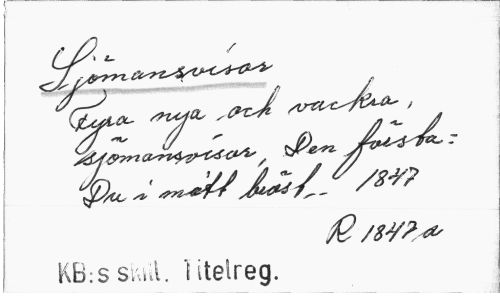 Sjömansvisor
Fyra nya och vackra,
sjömansvisor, Den första:
Du i mitt bröst... 1847
R 1847 a
KB:s skill. Titelreg.